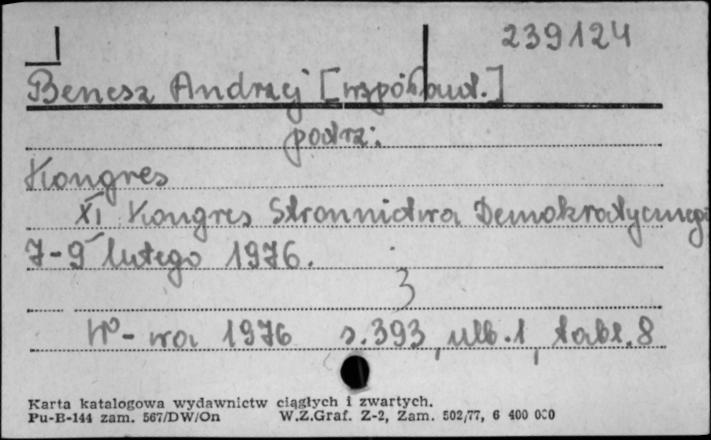 239124
Benesz Andrzej [współaut.]
podrz:
Kongres
XI Kongres Stronnictwa Demokratycznego
7-9 lutego 1976.
3
W-wa 1976 s.393, ulb.1, tabl.8
Karta katalogowa wydawnictw ciągłych i zwartych.
Pu-B-144 zam. 567/DW/On W.Z.Graf. Z-2, Zam. 502/77, 6 400 000